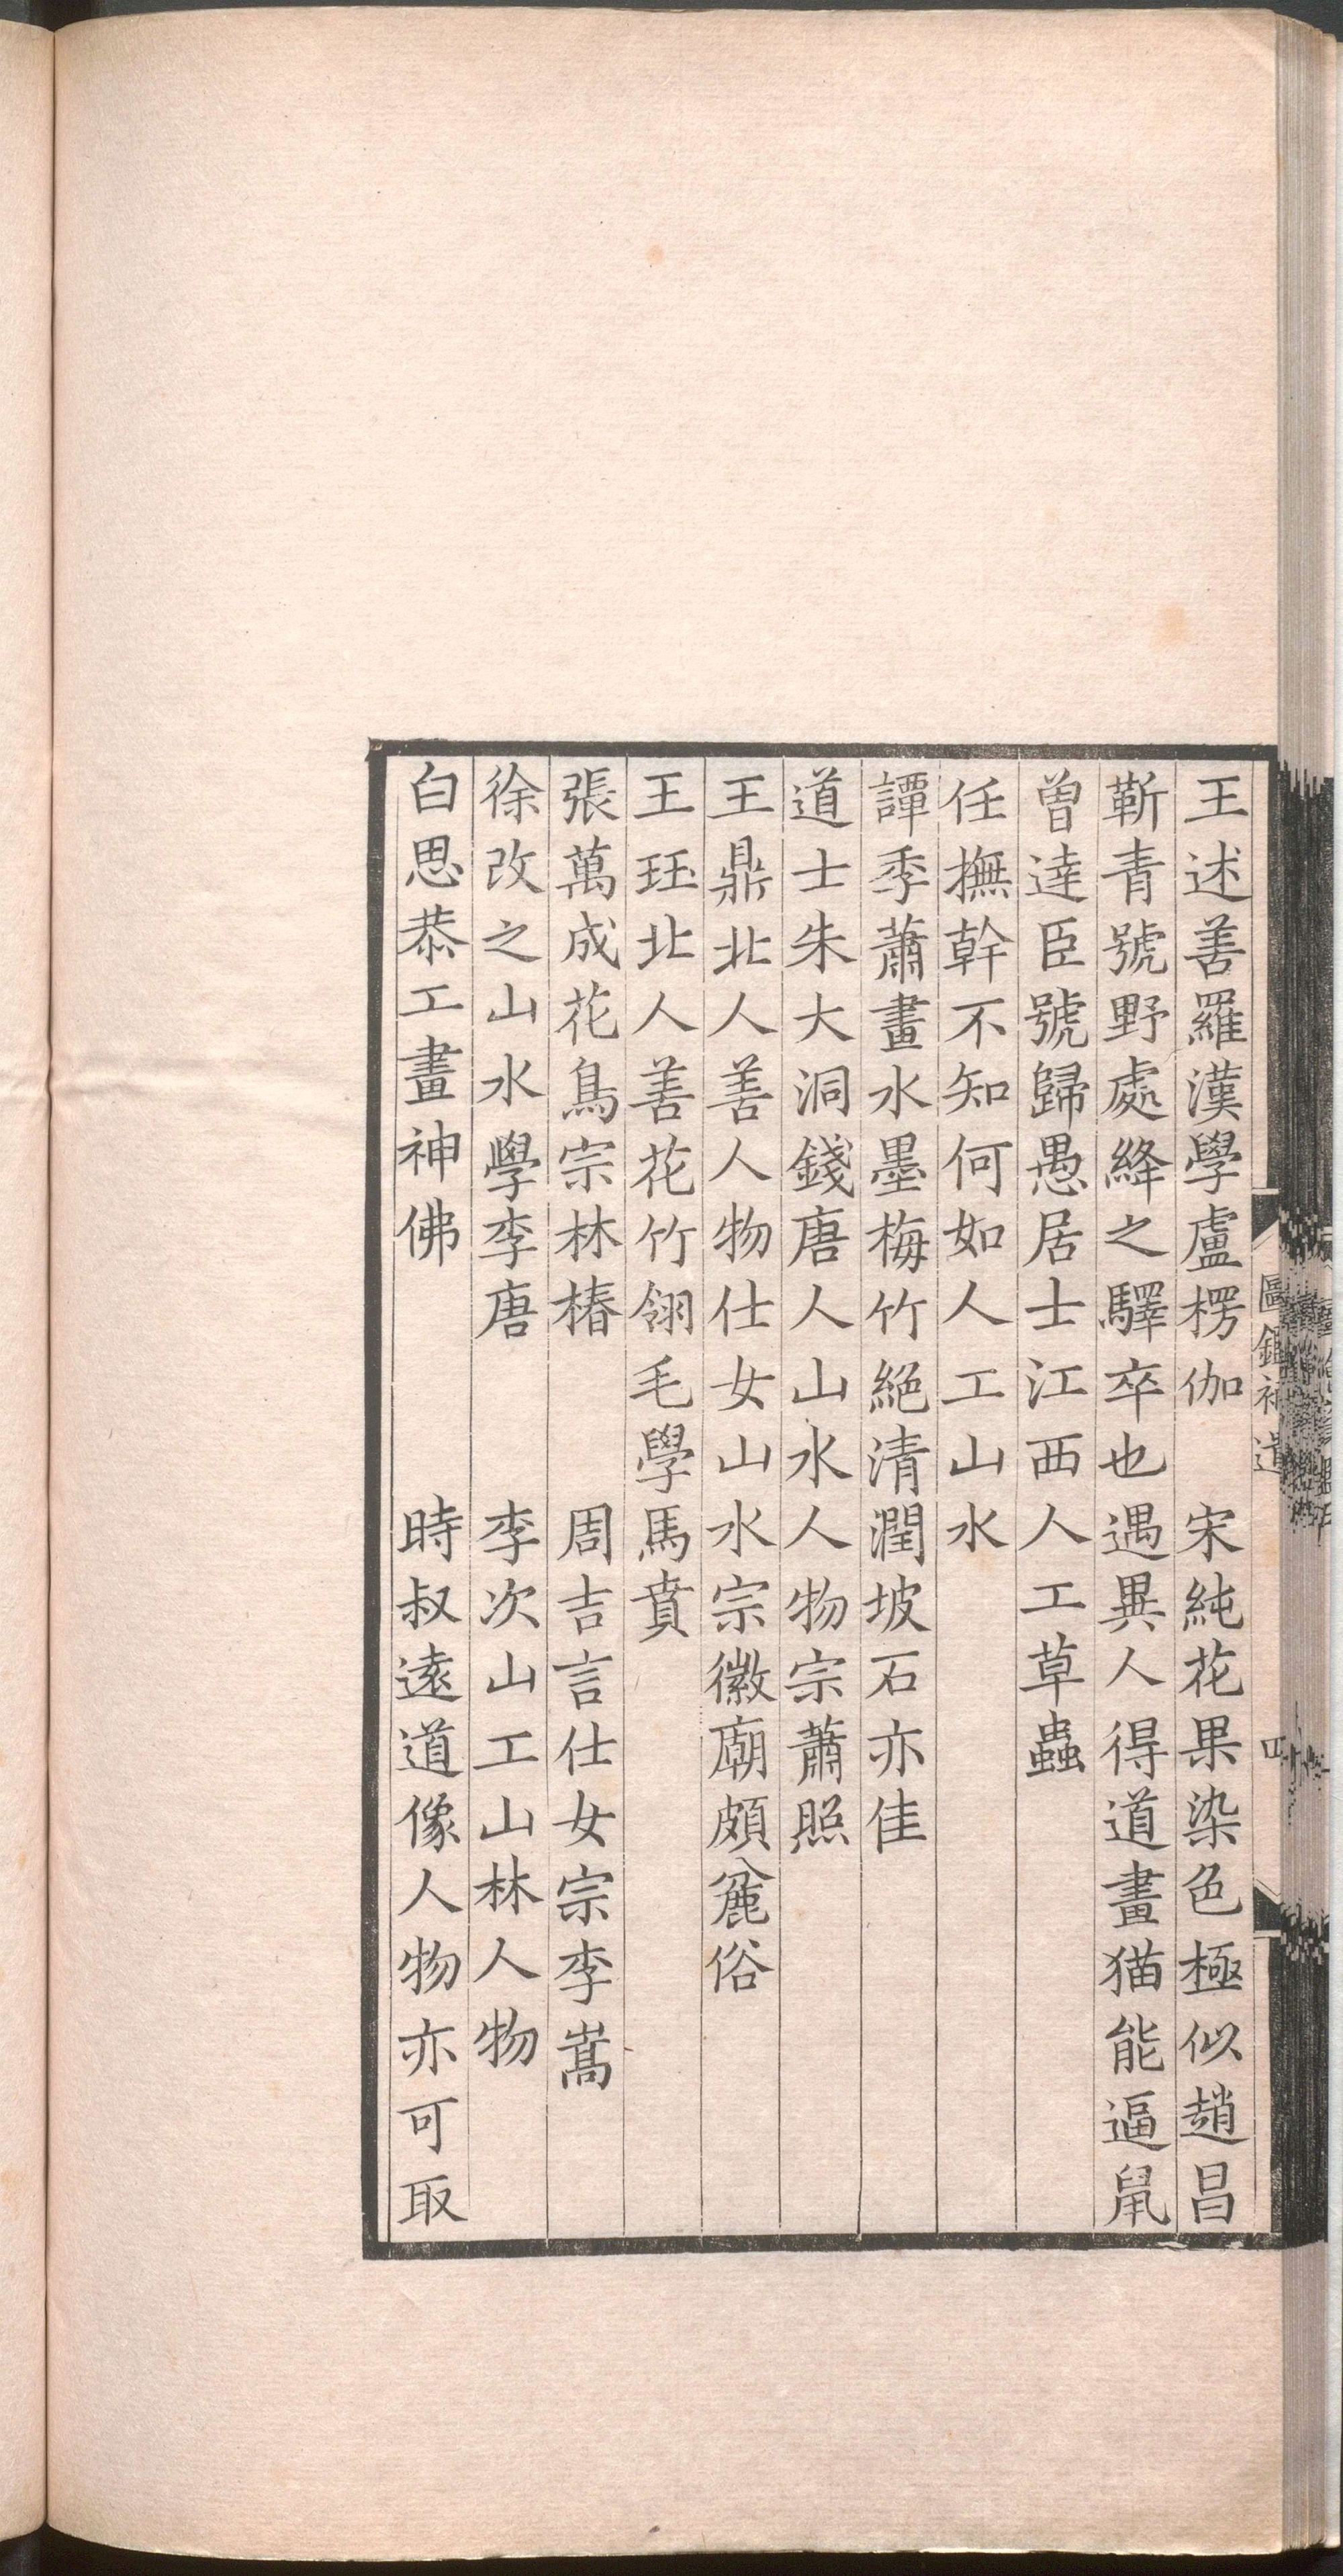 王述善羅漢學盧楞伽　宋純花果染色極似趙昌
靳青號野處絳之驛卒也遇異人得道畫猫能逼鼠
曾達臣號歸愚居士江西人工草蟲
任撫幹不知何如人工山水
譚季蕭畫水墨梅竹絕清潤坡石亦佳
道士朱大洞錢唐人山水人物宗蕭照
王鼎北人善人物仕女山水宗徽廟頗麄俗
王珏北人善花竹翎毛學馬賁
張萬成花鳥宗林椿　周吉言仕女宗李嵩
徐改之山水學李唐　李次山工山林人物
白思恭工畫神佛　時叔遠道像人物亦可取